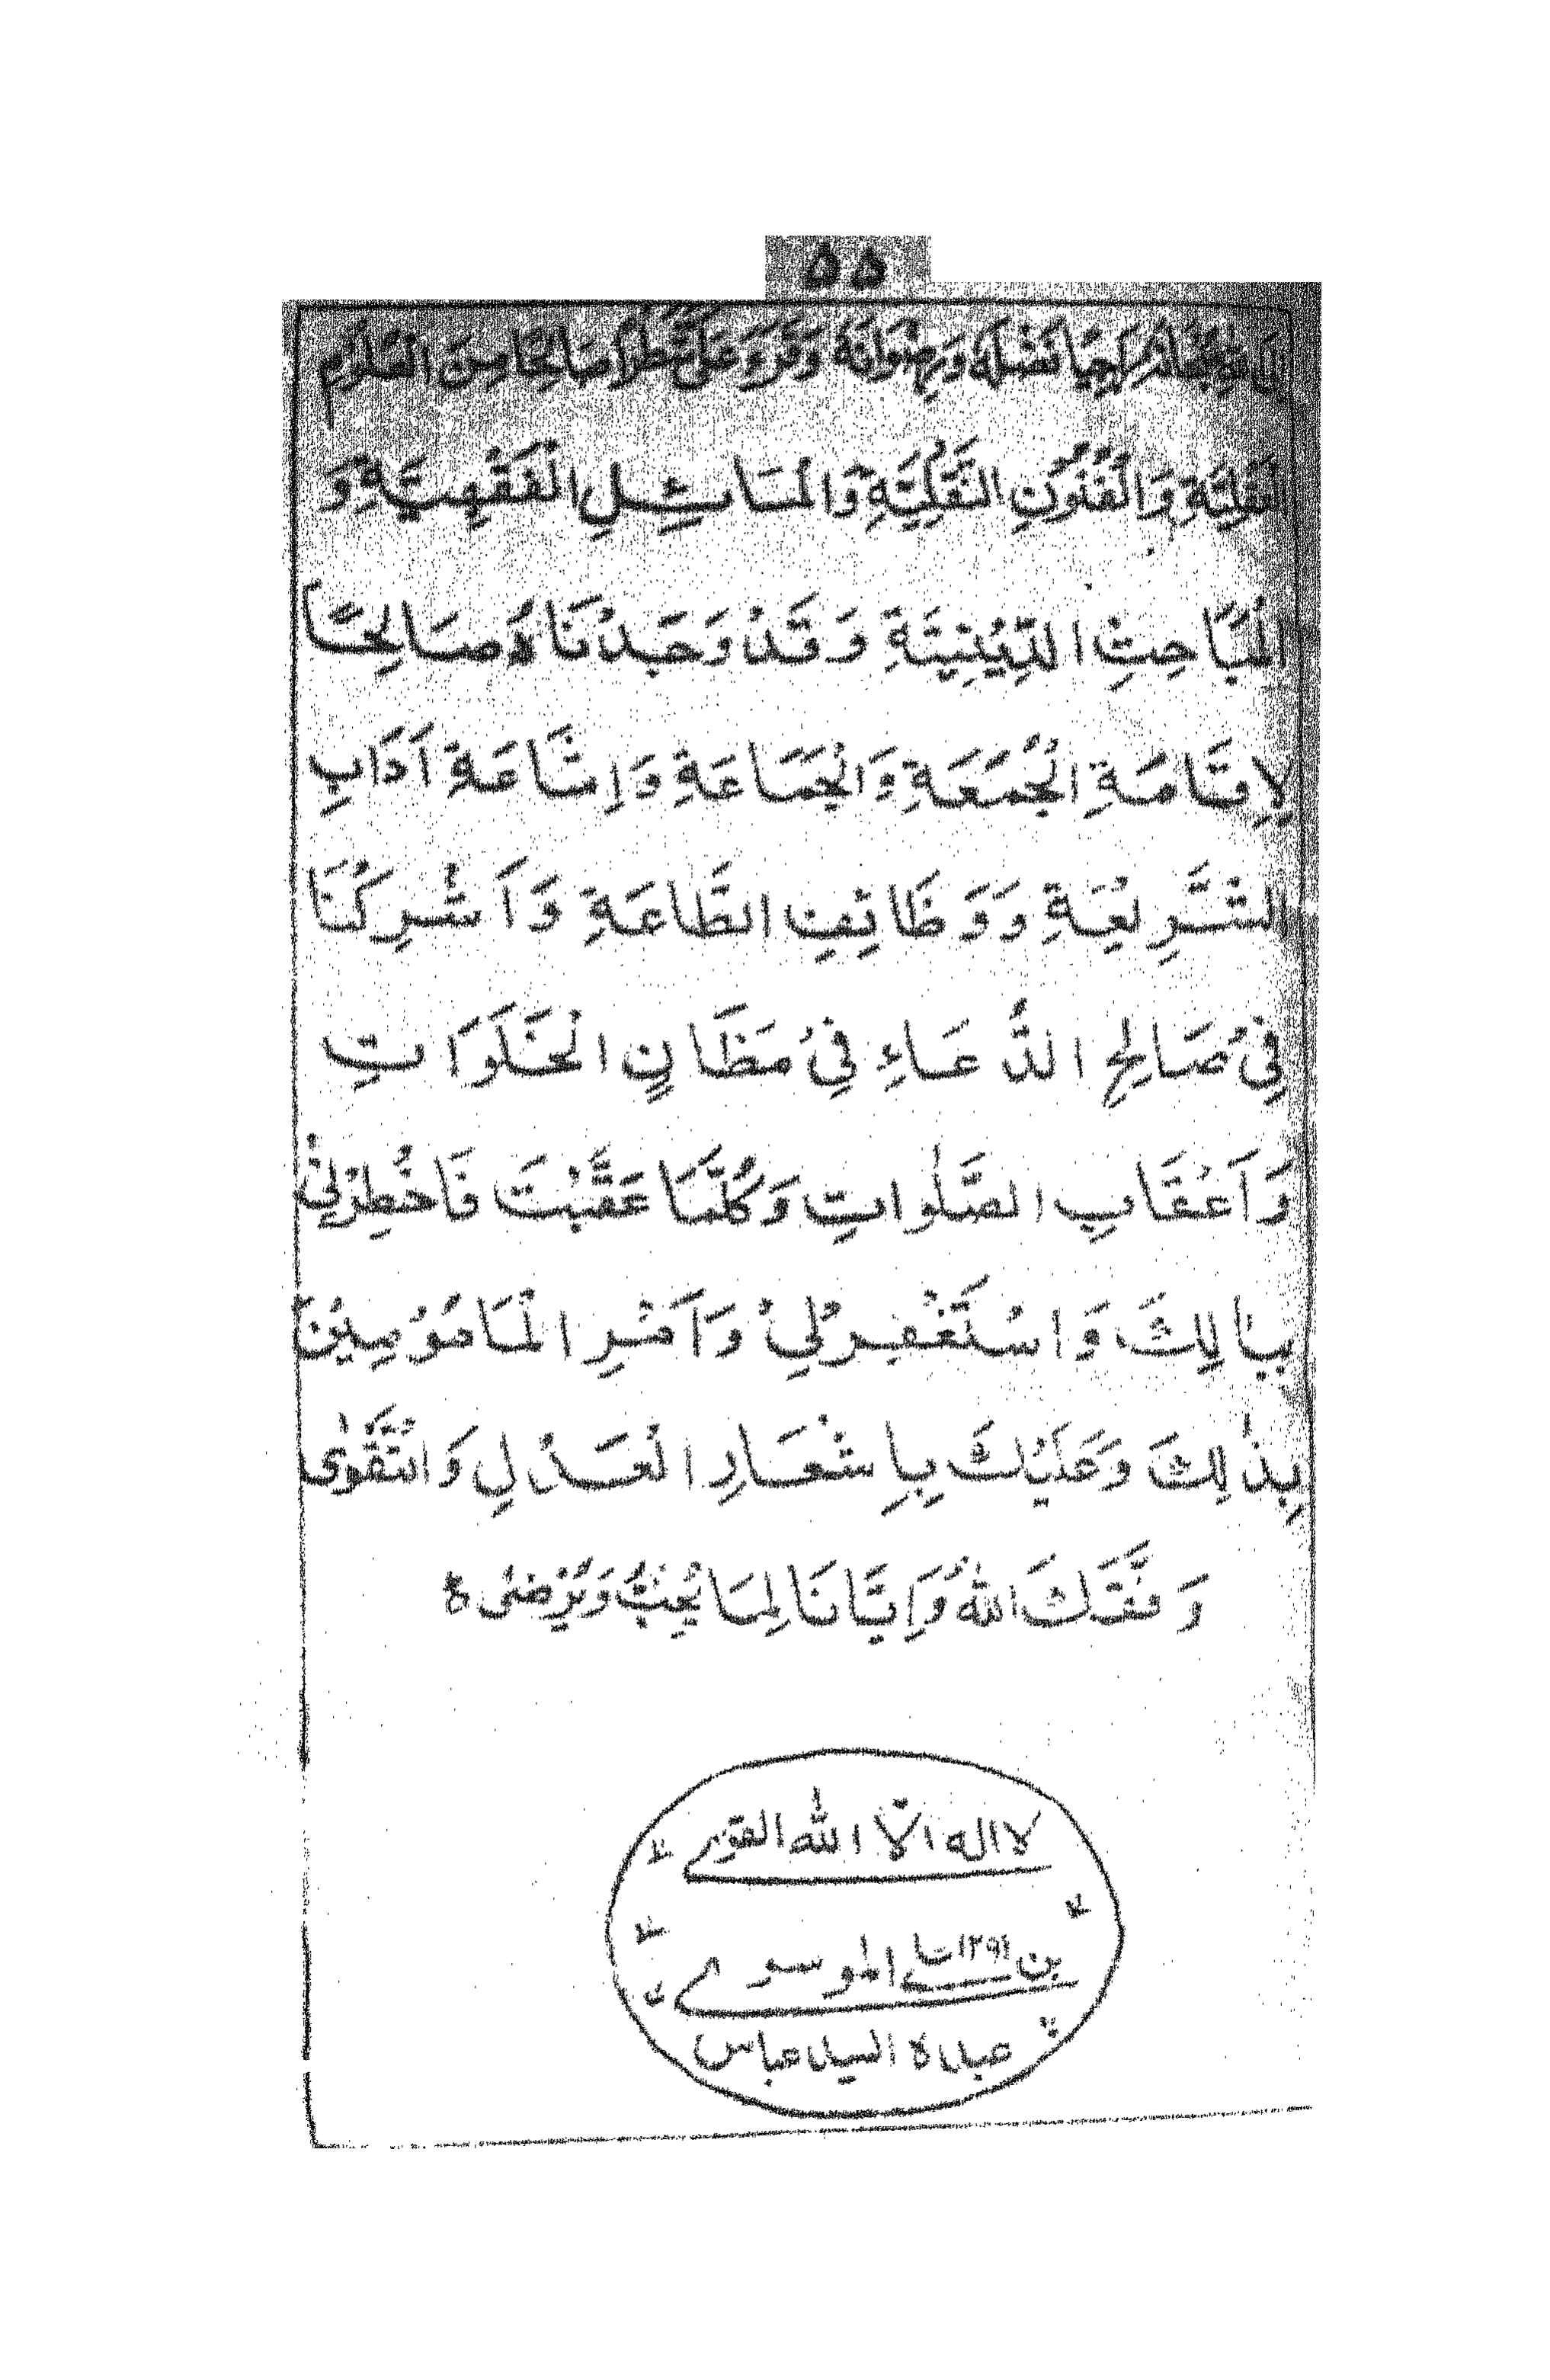 ۵۵
رَاجِيًا فَضْلَهُ وَرِضْوَانَهُ وَقَرَءَ عَلَیَّ شَطْرًا صَالِحًا مِنَ الْعُلُوْمِ
الْعَقْلِيَّةِ وَالْفُنُوْنِ النَّقْلِيَّةِ وَالْمَسَائِلِ الْفَقْهِيَّةِ وَ
الْمَبَاحِثِ الدِّيْنِيَّةِ وَقَدْ وَجَدْنَاهُ صَالِحًا
لِاِقَامَةِ الْجُمُعَةِ وَالْجَمَاعَةِ وَاِشَاعَةِ اٰدَابِ
الشَّرِيْعَةِ وَوَظَائِفِ الطَّاعَةِ وَاَشْرِكْنَا
فِیْ صَالِحِ الدُّعَاءِ فِیْ مَظَانِ الْخَلَوَاتِ
وَاَعْقَابِ الصَّلٰوَاتِ وَكُلَّمَا عَقَّبْتَ فَاخْطِرْنِیْ
بِبَالِكَ وَاسْتَغْفِرْلِیْ وَاٰمُرِ الْمَامُوْمِيْنَ
بِذٰلِكَ وَعَلَيْكَ بِاِشْعَارِ الْعَدْلِ وَالتَّقْوٰى
وَفَّقَكَ اللّٰهُ وَاِيَّانَا لِمَا يُحِبُّ وَيَرْضٰى
لا اله الّا اللّٰه القوے
بن ۱۲۹۱ الموسوے
عبده السيد عباس